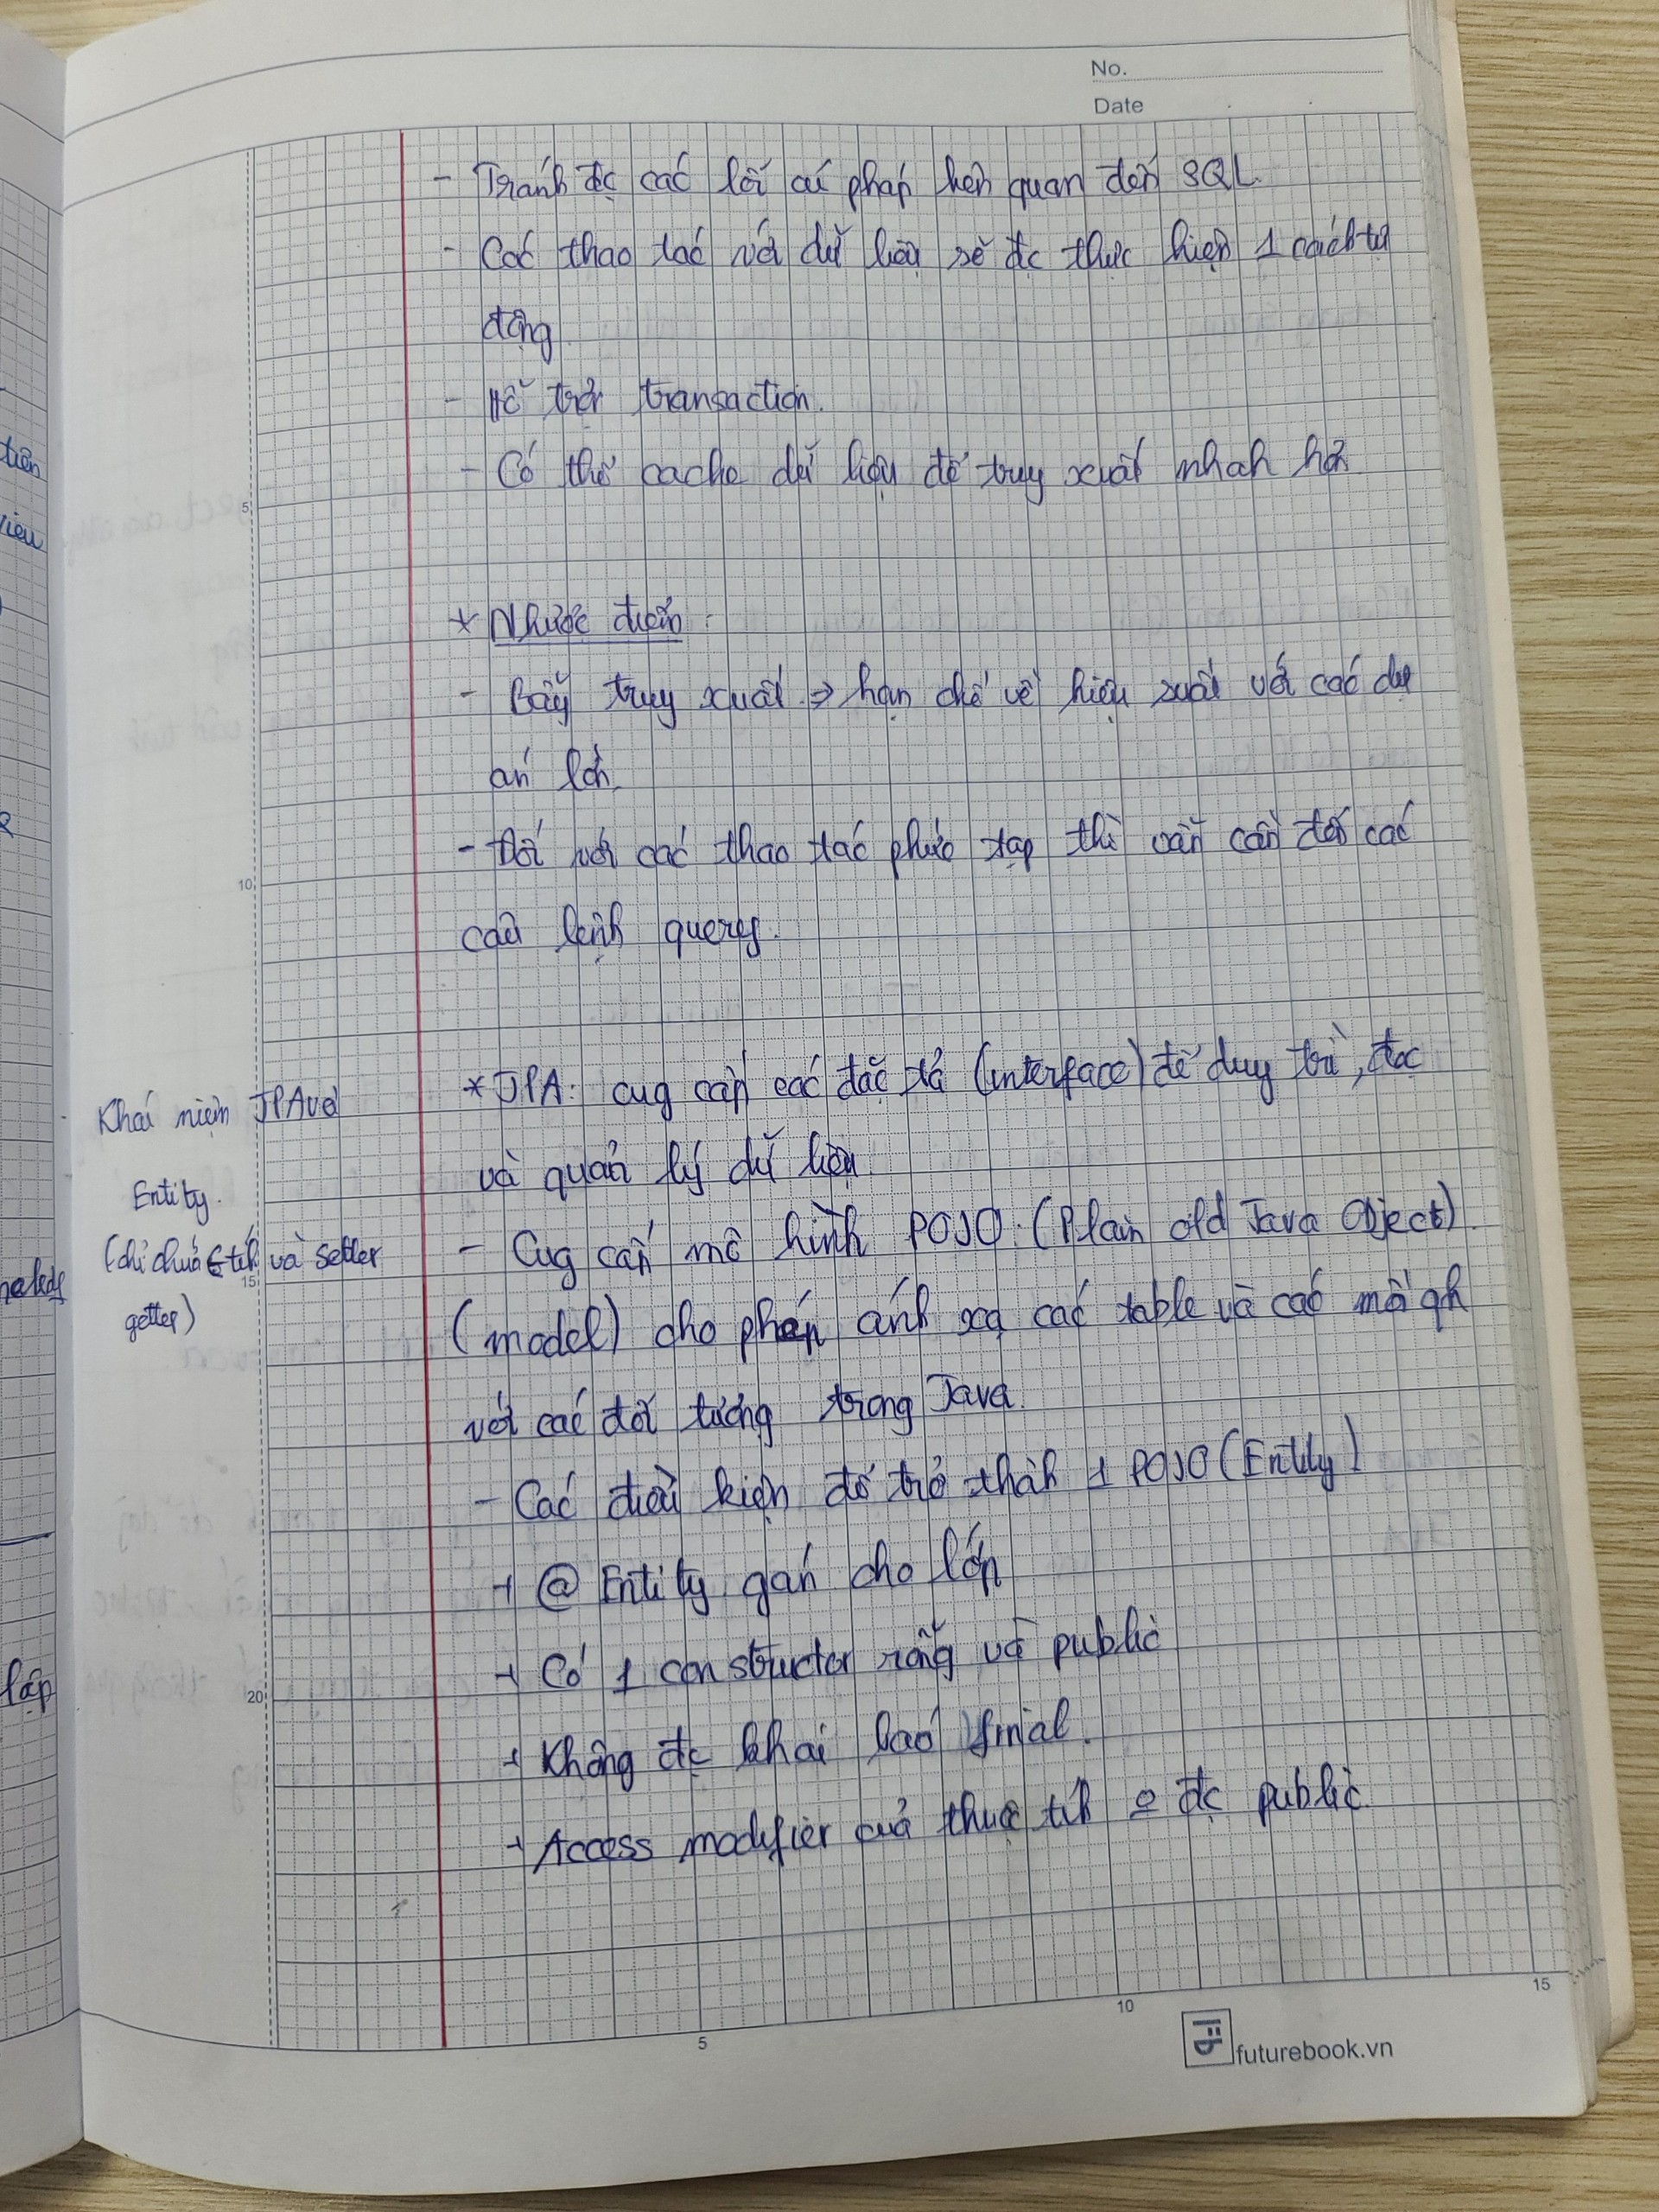 No.
Date
- Tránh đc các lỗi cú pháp liên quan đến SQL.
- Các thao tác với dữ liệu sẽ đc thực hiện 1 cách tự
động.
- Hỗ trợ transaction.
- Có thể cache dữ liệu để truy xuất nhanh hơn
5
* Nhược điểm :
- Bẫy truy xuất => hạn chế về hiệu suất với các dự
án lớn.
- Đối với các thao tác phức tạp thì vẫn cần đến các
10
câu lệnh query.
* JPA: cug cấp các đặc tả (interface) để duy trì, đọc
và quản lý dữ liệu.
- Cug cấp mô hình POJO: (Plain old Java Object)
(model) cho phép ánh xạ các table và các mối qh
với các đối tượng trong Java.
- Các điều kiện để trở thành 1 POJO (Entity)
+ @ Entity gán cho lớp
+ Có 1 constructor rỗng và public
+ Không đc khai báo final.
+ Access modifier của thuộc tính đc public.
Khái niệm JPA và
Entity.
(chỉ chứa tính và setter
getter)
15
20
tiên
lập
5
10
15
futurebook.vn